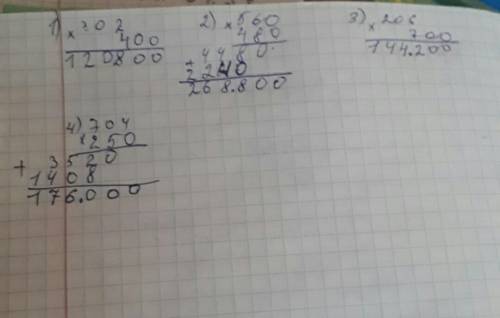 1) × 302
400
120800
2) × 560
480
4480
+ 2240
268.800
3) × 206
700
144.200
4) 704
× 250
+ 3520
1408
176.000